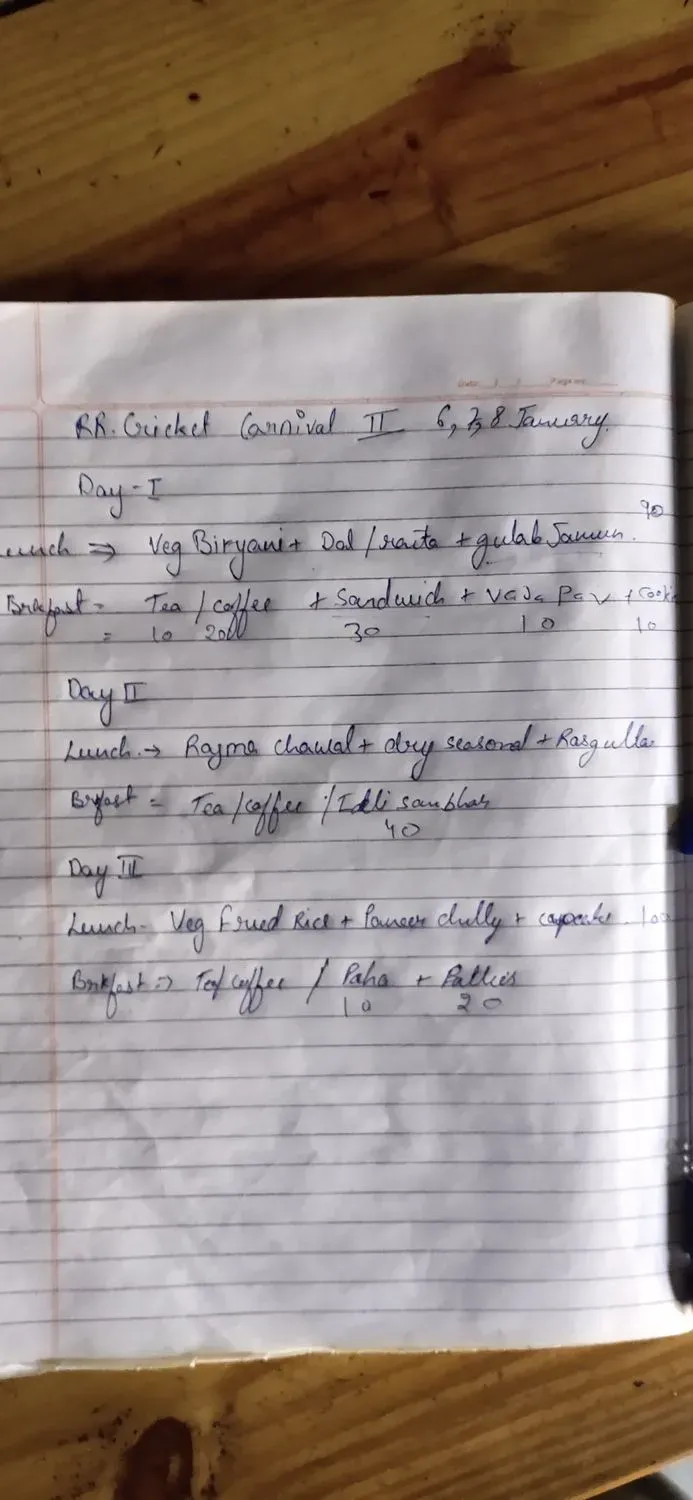 Date: / / Page no:
RR. Cricket Carnival II 6, 7, 8 January.
Day-I
90
Lunch ⇒ Veg Biryani + Dal / raita + gulab Jamun.
Brekfast = Tea / coffee + Sandwich + Vada Pav + Cookie
= 10 20 30 10 10
Day II
Lunch → Rajma chawal + dry seasonal + Rasgulla
Brfast = Tea / coffee / Idli sambhar
40
Day III
Lunch - Veg Fried Rice + Paneer chilly + 100
Brkfast ⇒ Tea/ coffee / Paha + Patties
10 20